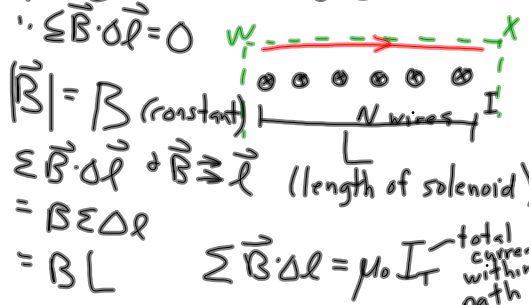 ∴ ΣB⃗·Δl⃗ = 0
W X
|B⃗| = B (constant)
N wires I
L
(length of solenoid)
ΣB⃗·Δl⃗ & B⃗ ⇉ l⃗
= BΣΔl
= BL
ΣB⃗·Δl = μ₀ I_T
total
current
within
path